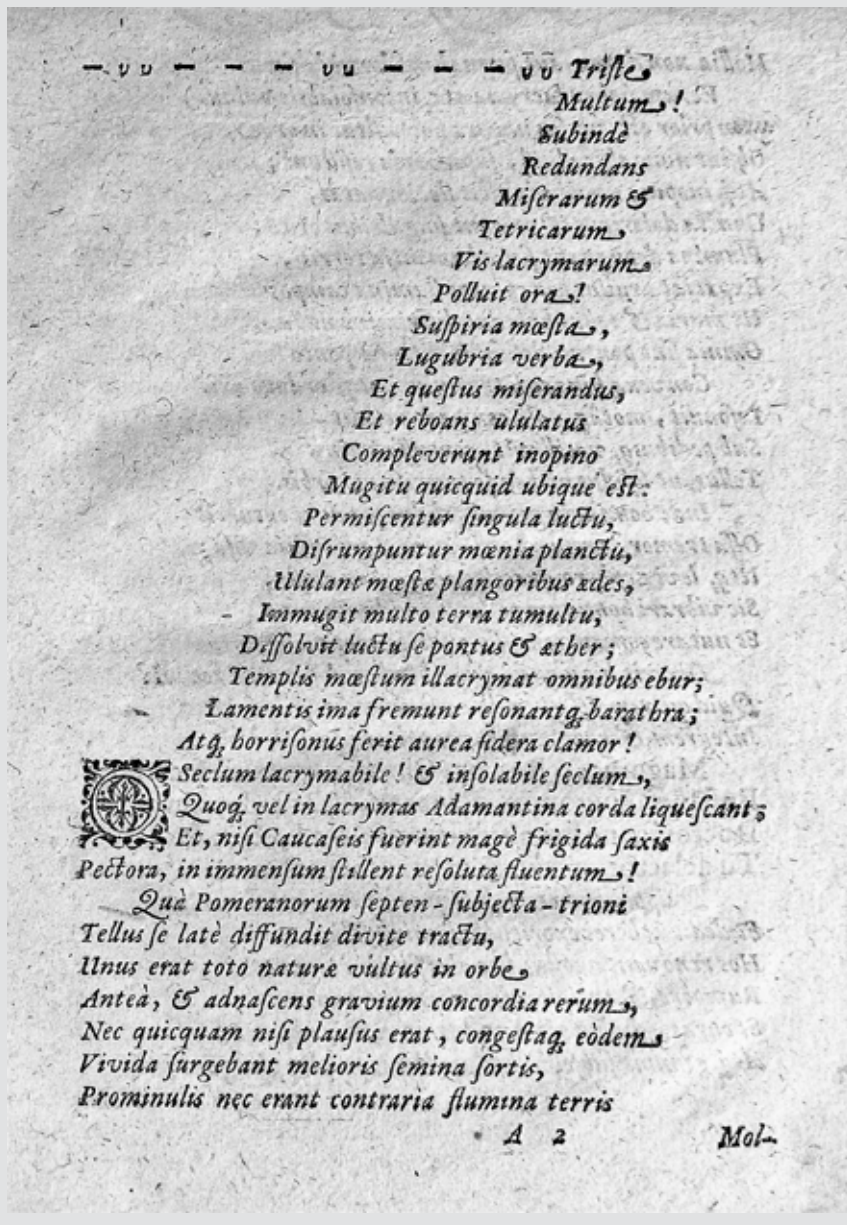 – υυ – – – υυ – – – υυ Triſte
Multum!
Subindè
Redundans
Miſerarum &
Tetricarum
Vis lacrymarum
Polluit ora!
Suſpiria mœſta,
Lugubria verba,
Et queſtus miſerandus,
Et reboans ululatus
Compleverunt inopino
Mugitu quicquid ubique eſt:
Permiſcentur ſingula luctu,
Diſrumpuntur mœnia planctu,
Ululant mœſtæ plangoribus ædes,
Immugit multo terra tumultu,
Diſſolvit luctu ſe pontus & æther;
Templis mœſtum illacrymat omnibus ebur;
Lamentis ima fremunt reſonantq́; barathra;
Atq́; horriſonus ferit aurea ſidera clamor!
O Seclum lacrymabile! & inſolabile ſeclum,
Quoq́; vel in lacrymas Adamantina corda liqueſcant;
Et, niſi Caucaſeis fuerint magè frigida ſaxis
Pectora, in immenſum ſtillent reſoluta fluentum!
Quà Pomeranorum ſepten-ſubjecta-trioni
Tellus ſe latè diffundit divite tractu,
Unus erat toto naturæ vultus in orbe
Anteà, & adnaſcens gravium concordia rerum,
Nec quicquam niſi plauſus erat, congeſtaq́; eòdem
Vivida ſurgebant melioris ſemina ſortis,
Prominulis nec erant contraria flumina terris
A 2 Mol-